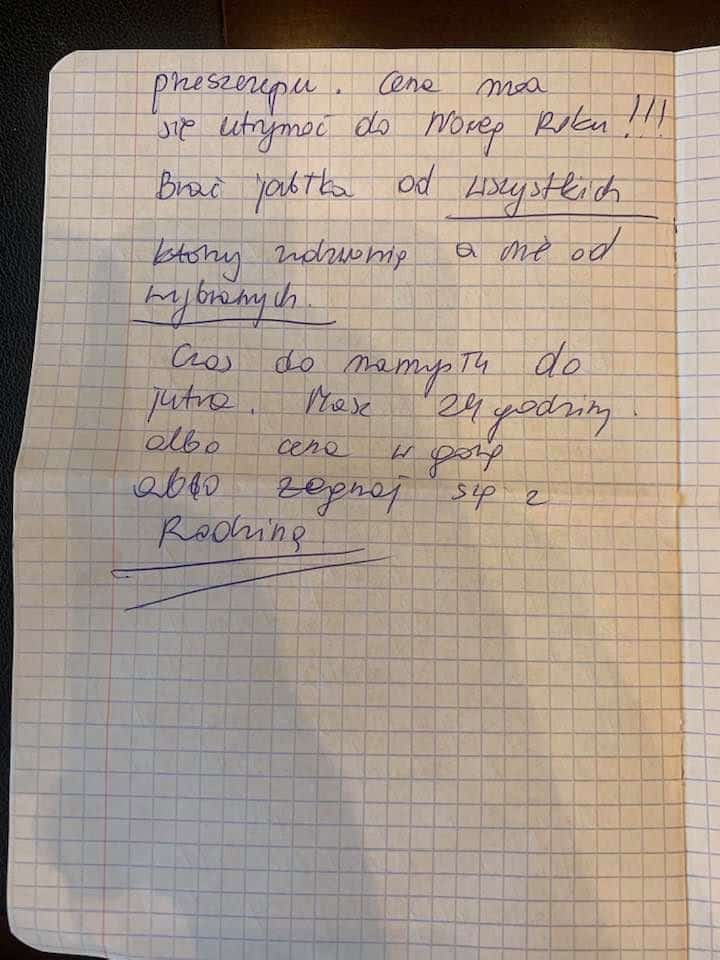 przeszczepu. Cena ma
się utrzymać do Nowego Roku!!!
Brać jabłka od wszystkich
który zdzwonię a nie od
wybranych.
Czas do namysłu do
jutra. Max 24 godziny.
albo cena w górę
albo żegnaj się z
Rodziną